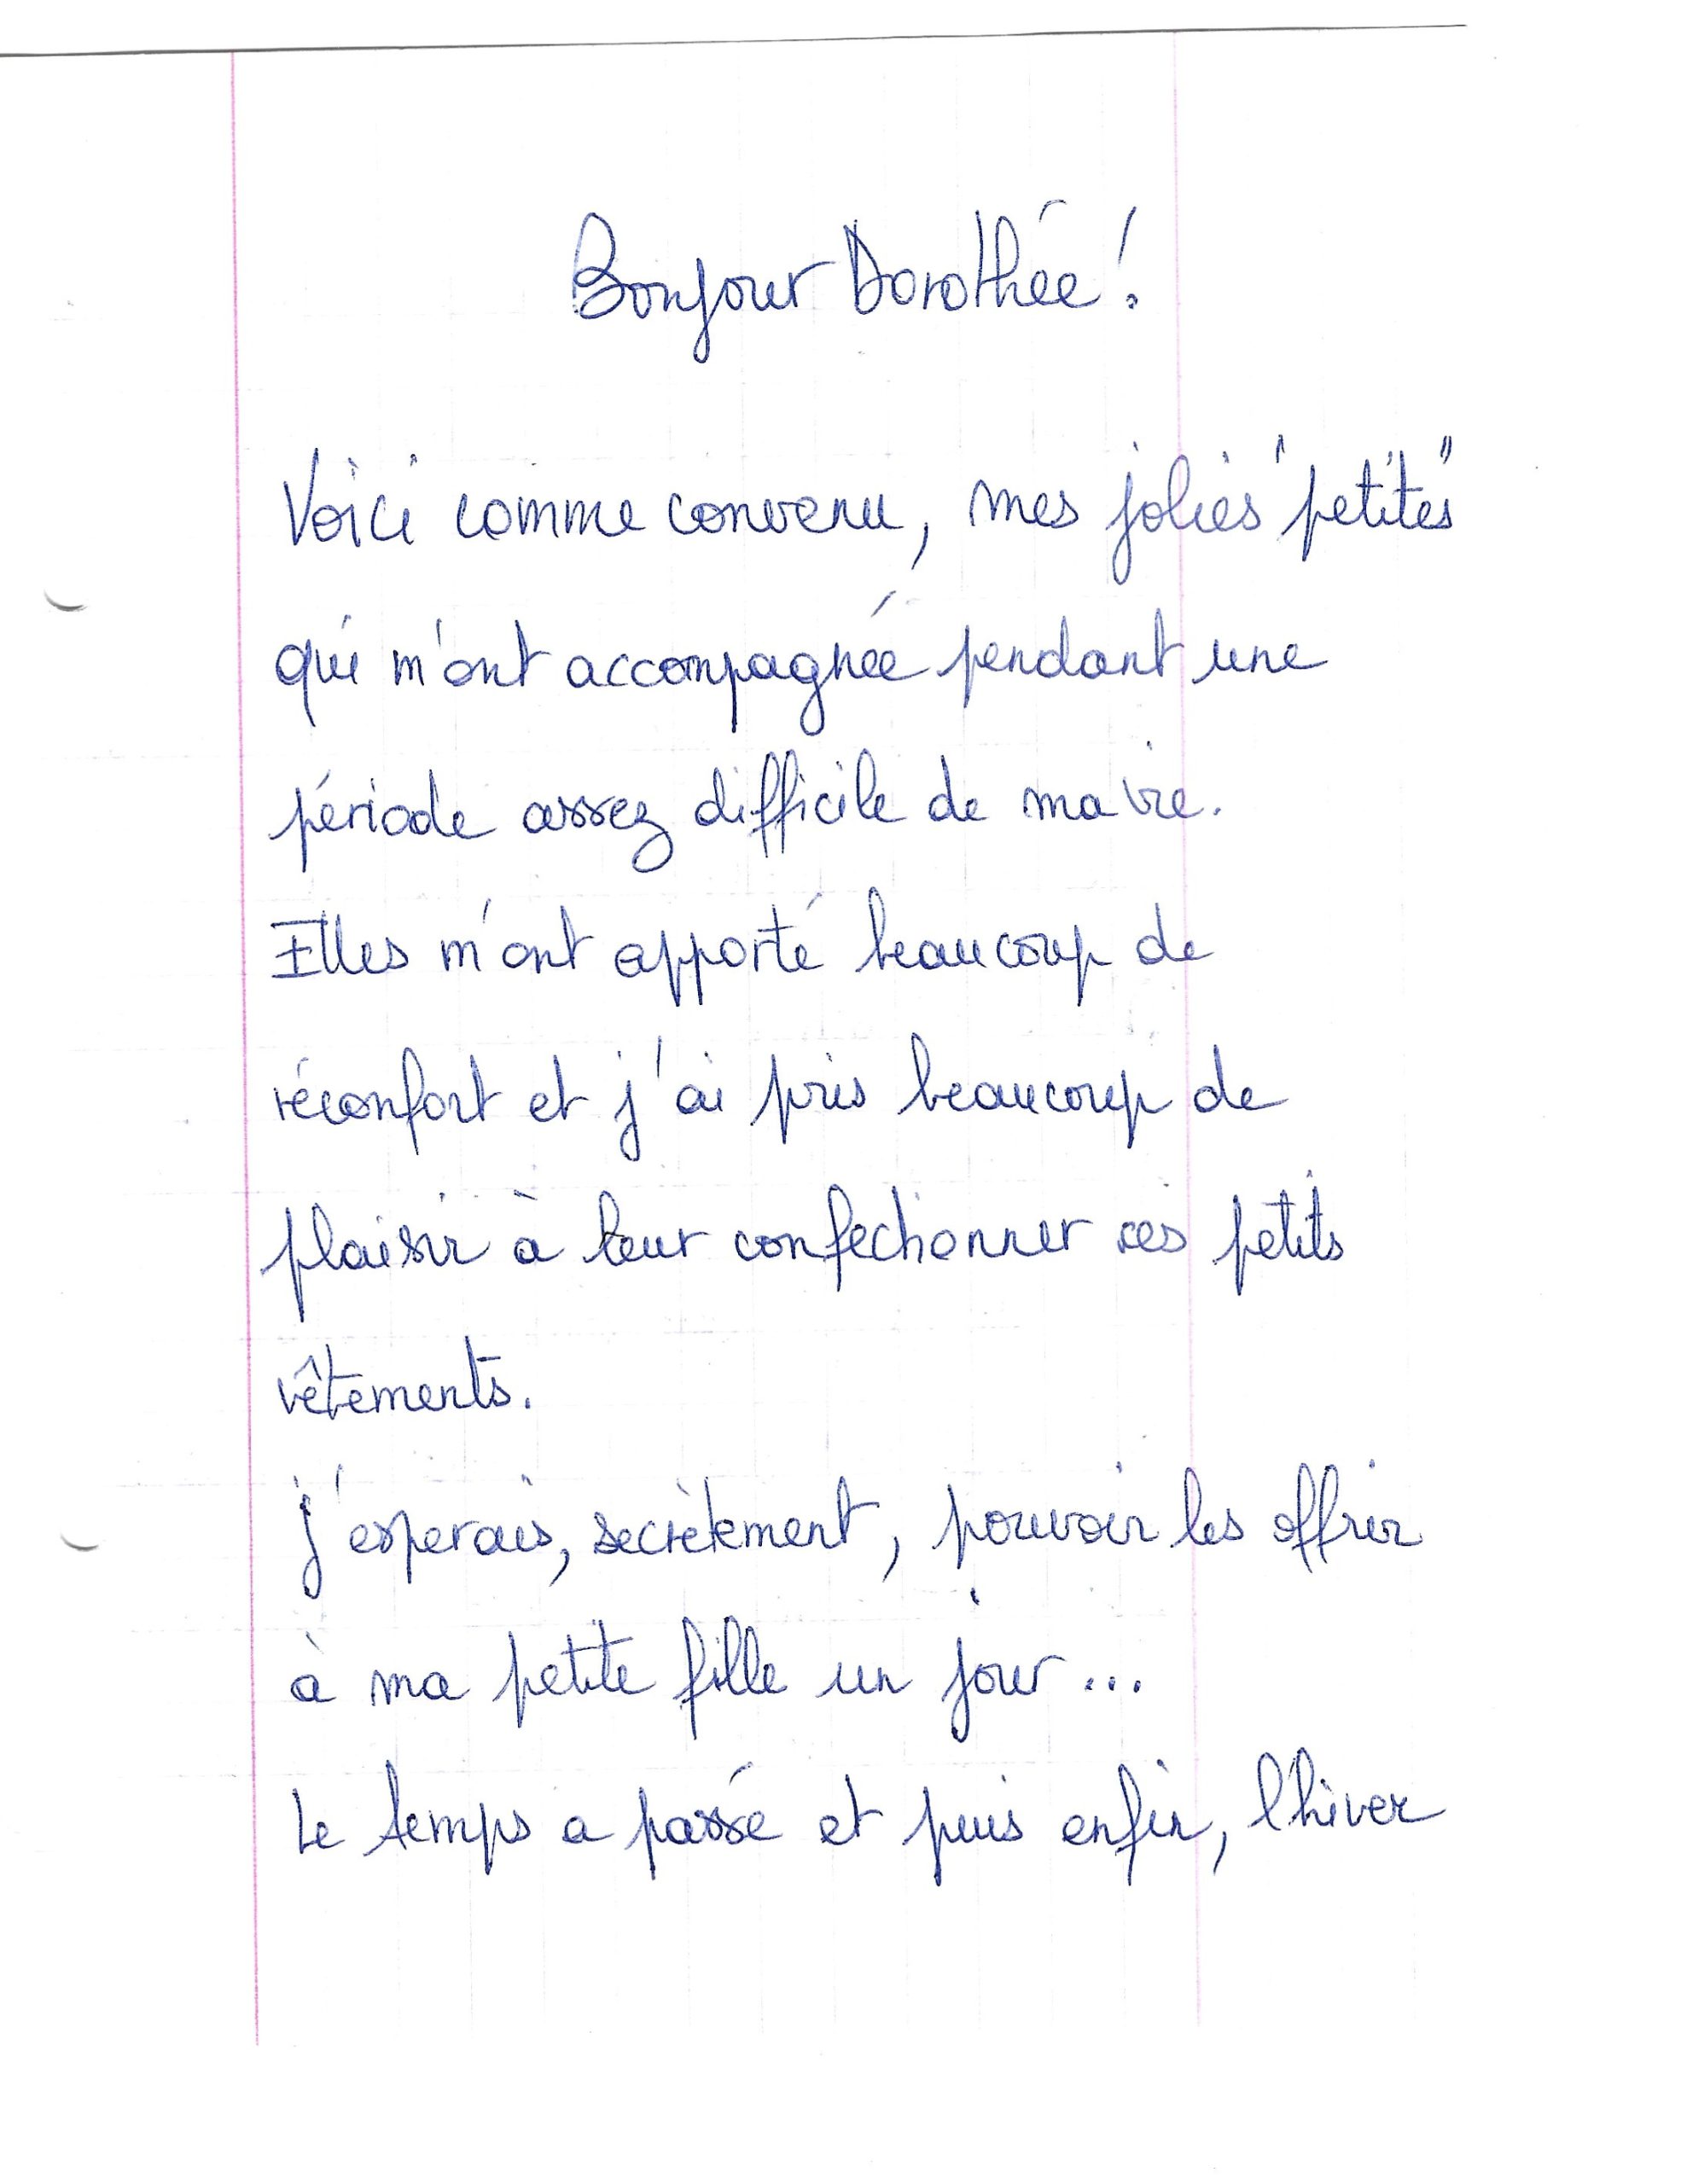 Bonjour Dorothée !
Voici comme convenu, mes jolies "petites"
qui m'ont accompagnée pendant une
période assez difficile de ma vie.
Elles m'ont apporté beaucoup de
réconfort et j'ai pris beaucoup de
plaisir à leur confectionner ces petits
vêtements.
J'esperais, secrètement, pouvoir les offrir
à ma petite fille un jour...
Le temps a passé et puis enfin, l'hiver